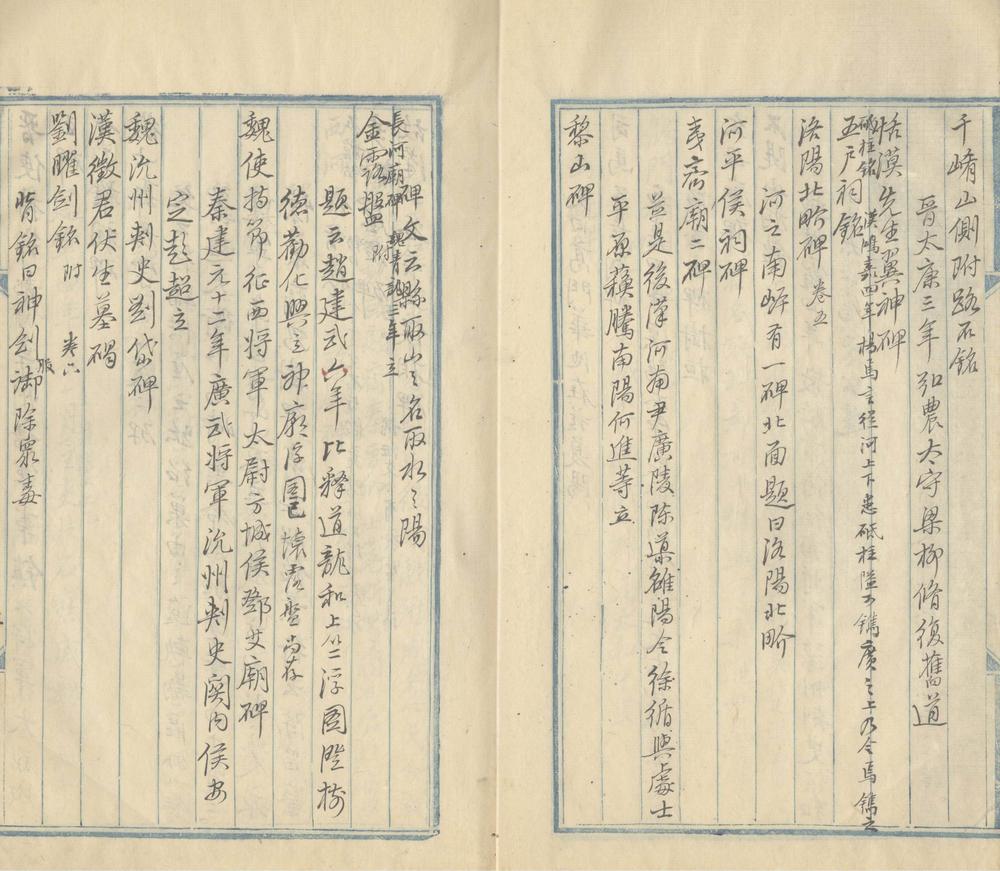 千崤山側附路石銘
晉太康三年弘農太守梁柳脩復舊道
恬漠先生翼神碑
砥柱銘 漢鴻嘉四年楊焉言從河上下患砥柱隘可鐫廣之上乃令焉鐫之
五户祠銘
洛陽北畍碑 卷五
河之南岸有一碑北面題曰洛陽北畍
河平侯祠碑
夷齊廟二碑
並是後漢河南尹廣陵陳導雒陽令徐循與處士
平原蘇騰南陽何進等立
黎山碑
碑文云縣取山之名取水之陽
長河廟碑 魏青龍三年立
金露盤 附
題云趙建武六年比釋道龍和上竺浮圖澄樹
德勸化興立神廟浮圖已壞露盤尚存
魏使持節征西將軍太尉方城侯鄧艾廟碑
秦建元十二年廣武將軍沇州刺史関内侯安
定彭超立
魏沇州刺史劉岱碑
漢徵君伏生墓碣
劉曜劍銘 附 卷六
背銘曰神劍服御除衆毒